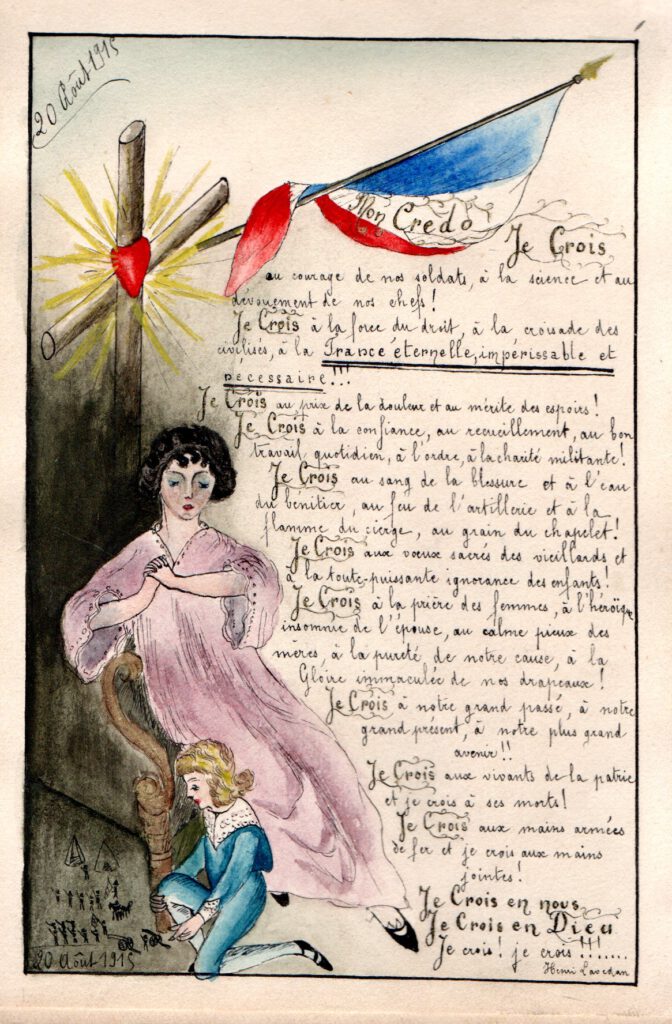 20 Août 1915
Mon Credo
Je Crois
au courage de nos soldats, à la science et au
dévouement de nos chefs!
Je Crois à la force du droit, à la croisade des
civilisés, à la France éternelle, impérissable et
nécessaire!!!
Je Crois au prix de la douleur et au mérite des espoirs!
Je Crois à la confiance, au recueillement, au bon
travail quotidien, à l'ordre, à la charité militante!
Je Crois au sang de la blessure et à l'eau
du bénitier, au feu de l'artillerie et à la
flamme du cierge, au grain du chapelet!
Je Crois aux vœux sacrés des vieillards et
à la toute-puissante ignorance des enfants!
Je Crois à la prière des femmes, à l'héroïque
insomnie de l'épouse, au calme pieux des
mères, à la pureté de notre cause, à la
Gloire immaculée de nos drapeaux!
Je Crois à notre grand passé, à notre
grand présent, à notre plus grand
avenir!!
Je Crois aux vivants de la patrie
et je crois à ses morts!
Je Crois aux mains armées
de fer et je crois aux mains
jointes!
Je Crois en nous
Je Crois en Dieu
Je crois! je crois!!!......
Henri Lavedan
20 Août 1915